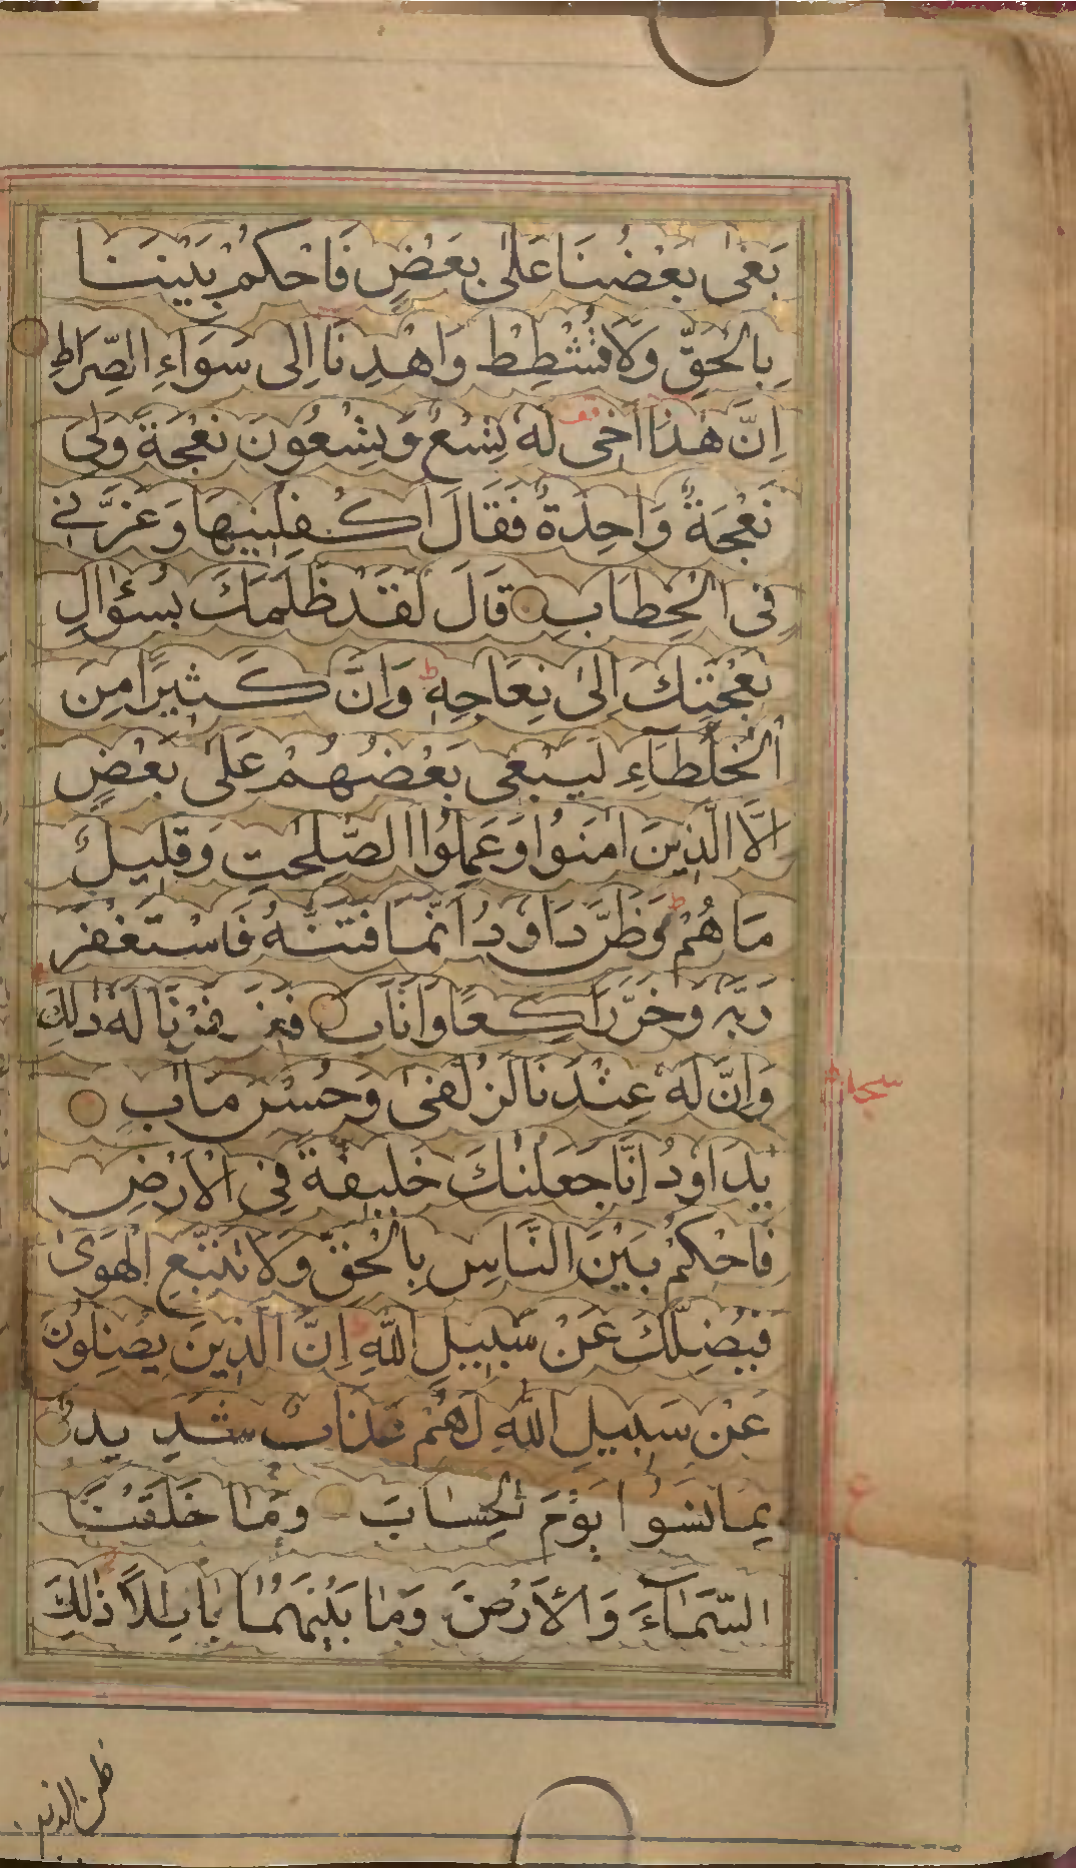 بَغٰى بَعْضُنَا عَلٰى بَعْضٍ فَاحْكُمْ بَيْنَنَا
بِالْحَقِّ وَلَا تُشْطِطْ وَاهْدِنَا اِلٰى سَوَاءِ الصِّرَاطِ
اِنَّ هٰذَا اَخِى لَهٗ تِسْعٌ وَتِسْعُونَ نَعْجَةً وَلِىَ
نَعْجَةٌ وَاحِدَةٌ فَقَالَ اَكْفِلْنِيهَا وَعَزَّنِى
فِى الْخِطَابِ قَالَ لَقَدْ ظَلَمَكَ بِسُؤَالِ
نَعْجَتِكَ اِلٰى نِعَاجِهٖ ط وَاِنَّ كَثِيْرًا مِنَ
الْخُلَطَاءِ لَيَبْغِى بَعْضُهُمْ عَلٰى بَعْضٍ
اِلَّا الَّذِينَ اٰمَنُوا وَعَمِلُوا الصّٰلِحٰتِ وَقَلِيلٌ
مَا هُمْ ط وَظَنَّ دَاوٗدُ اَنَّمَا فَتَنّٰهُ فَاسْتَغْفَرَ
رَبَّهٗ وَخَرَّ رَاكِعًا وَاَنَابَ فَغَفَرْنَا لَهٗ ذٰلِكَ
وَاِنَّ لَهٗ عِنْدَنَا لَزُلْفٰى وَحُسْنَ مَاٰبٍ
يٰدَاوٗدُ اِنَّا جَعَلْنٰكَ خَلِيفَةً فِى الْاَرْضِ
فَاحْكُمْ بَيْنَ النَّاسِ بِالْحَقِّ وَلَا تَتَّبِعِ الْهَوٰى
فَيُضِلَّكَ عَنْ سَبِيلِ اللّٰهِ ط اِنَّ الَّذِينَ يَضِلُّونَ
عَنْ سَبِيلِ اللّٰهِ لَهُمْ عَذَابٌ شَدِيدٌ
بِمَا نَسُوا يَوْمَ الْحِسَابِ وَمَا خَلَقْنَا
السَّمَاءَ وَالْاَرْضَ وَمَا بَيْنَهُمَا بَاطِلًا ذٰلِكَ
ع
ظن الذين